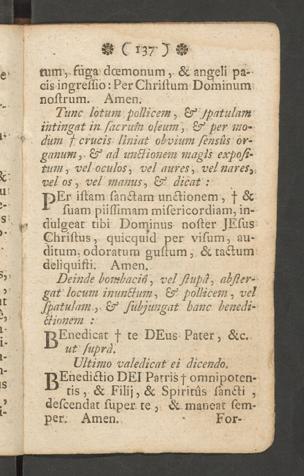 ❋ ( 137 ) ❋
tum, fuga dœmonum, & angeli pa-
cis ingreſſio: Per Chriſtum Dominum
noſtrum. Amen.
Tunc lotum pollicem, & ſpatulam
intingat in ſacrum oleum, & per mo-
dum † crucis liniat obvium ſensûs or-
ganum, & ad unctionem magis expoſi-
tum, vel oculos, vel aures, vel nares,
vel os, vel manus, & dicat :
PEr iſtam ſanctam unctionem, † &
ſuam piiſſimam miſericordiam, in-
dulgeat tibi Dominus noſter JEſus
Chriſtus, quicquid per viſum, au-
ditum, odoratum guſtum, & tactum
deliquiſti. Amen.
Deinde bombaciô, vel ſtupâ, abſter-
gat locum inunctum, & pollicem, vel
ſpatulam, & ſubjungat hanc benedi-
ctionem :
BEnedicat † te DEus Pater, &c.
ut ſuprâ.
Ultimo valedicat ei dicendo.
BEnedictio DEI Patris † omnipoten-
tis, & Filij, & Spiritûs ſancti ,
deſcendat ſuper te, & maneat ſem-
per. Amen.
For-